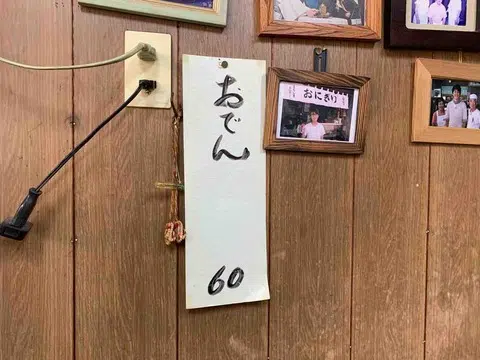 おでん
60
おにぎり